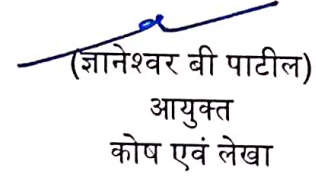 (ज्ञानेश्वर बी पाटील)
आयुक्त
कोष एवं लेखा